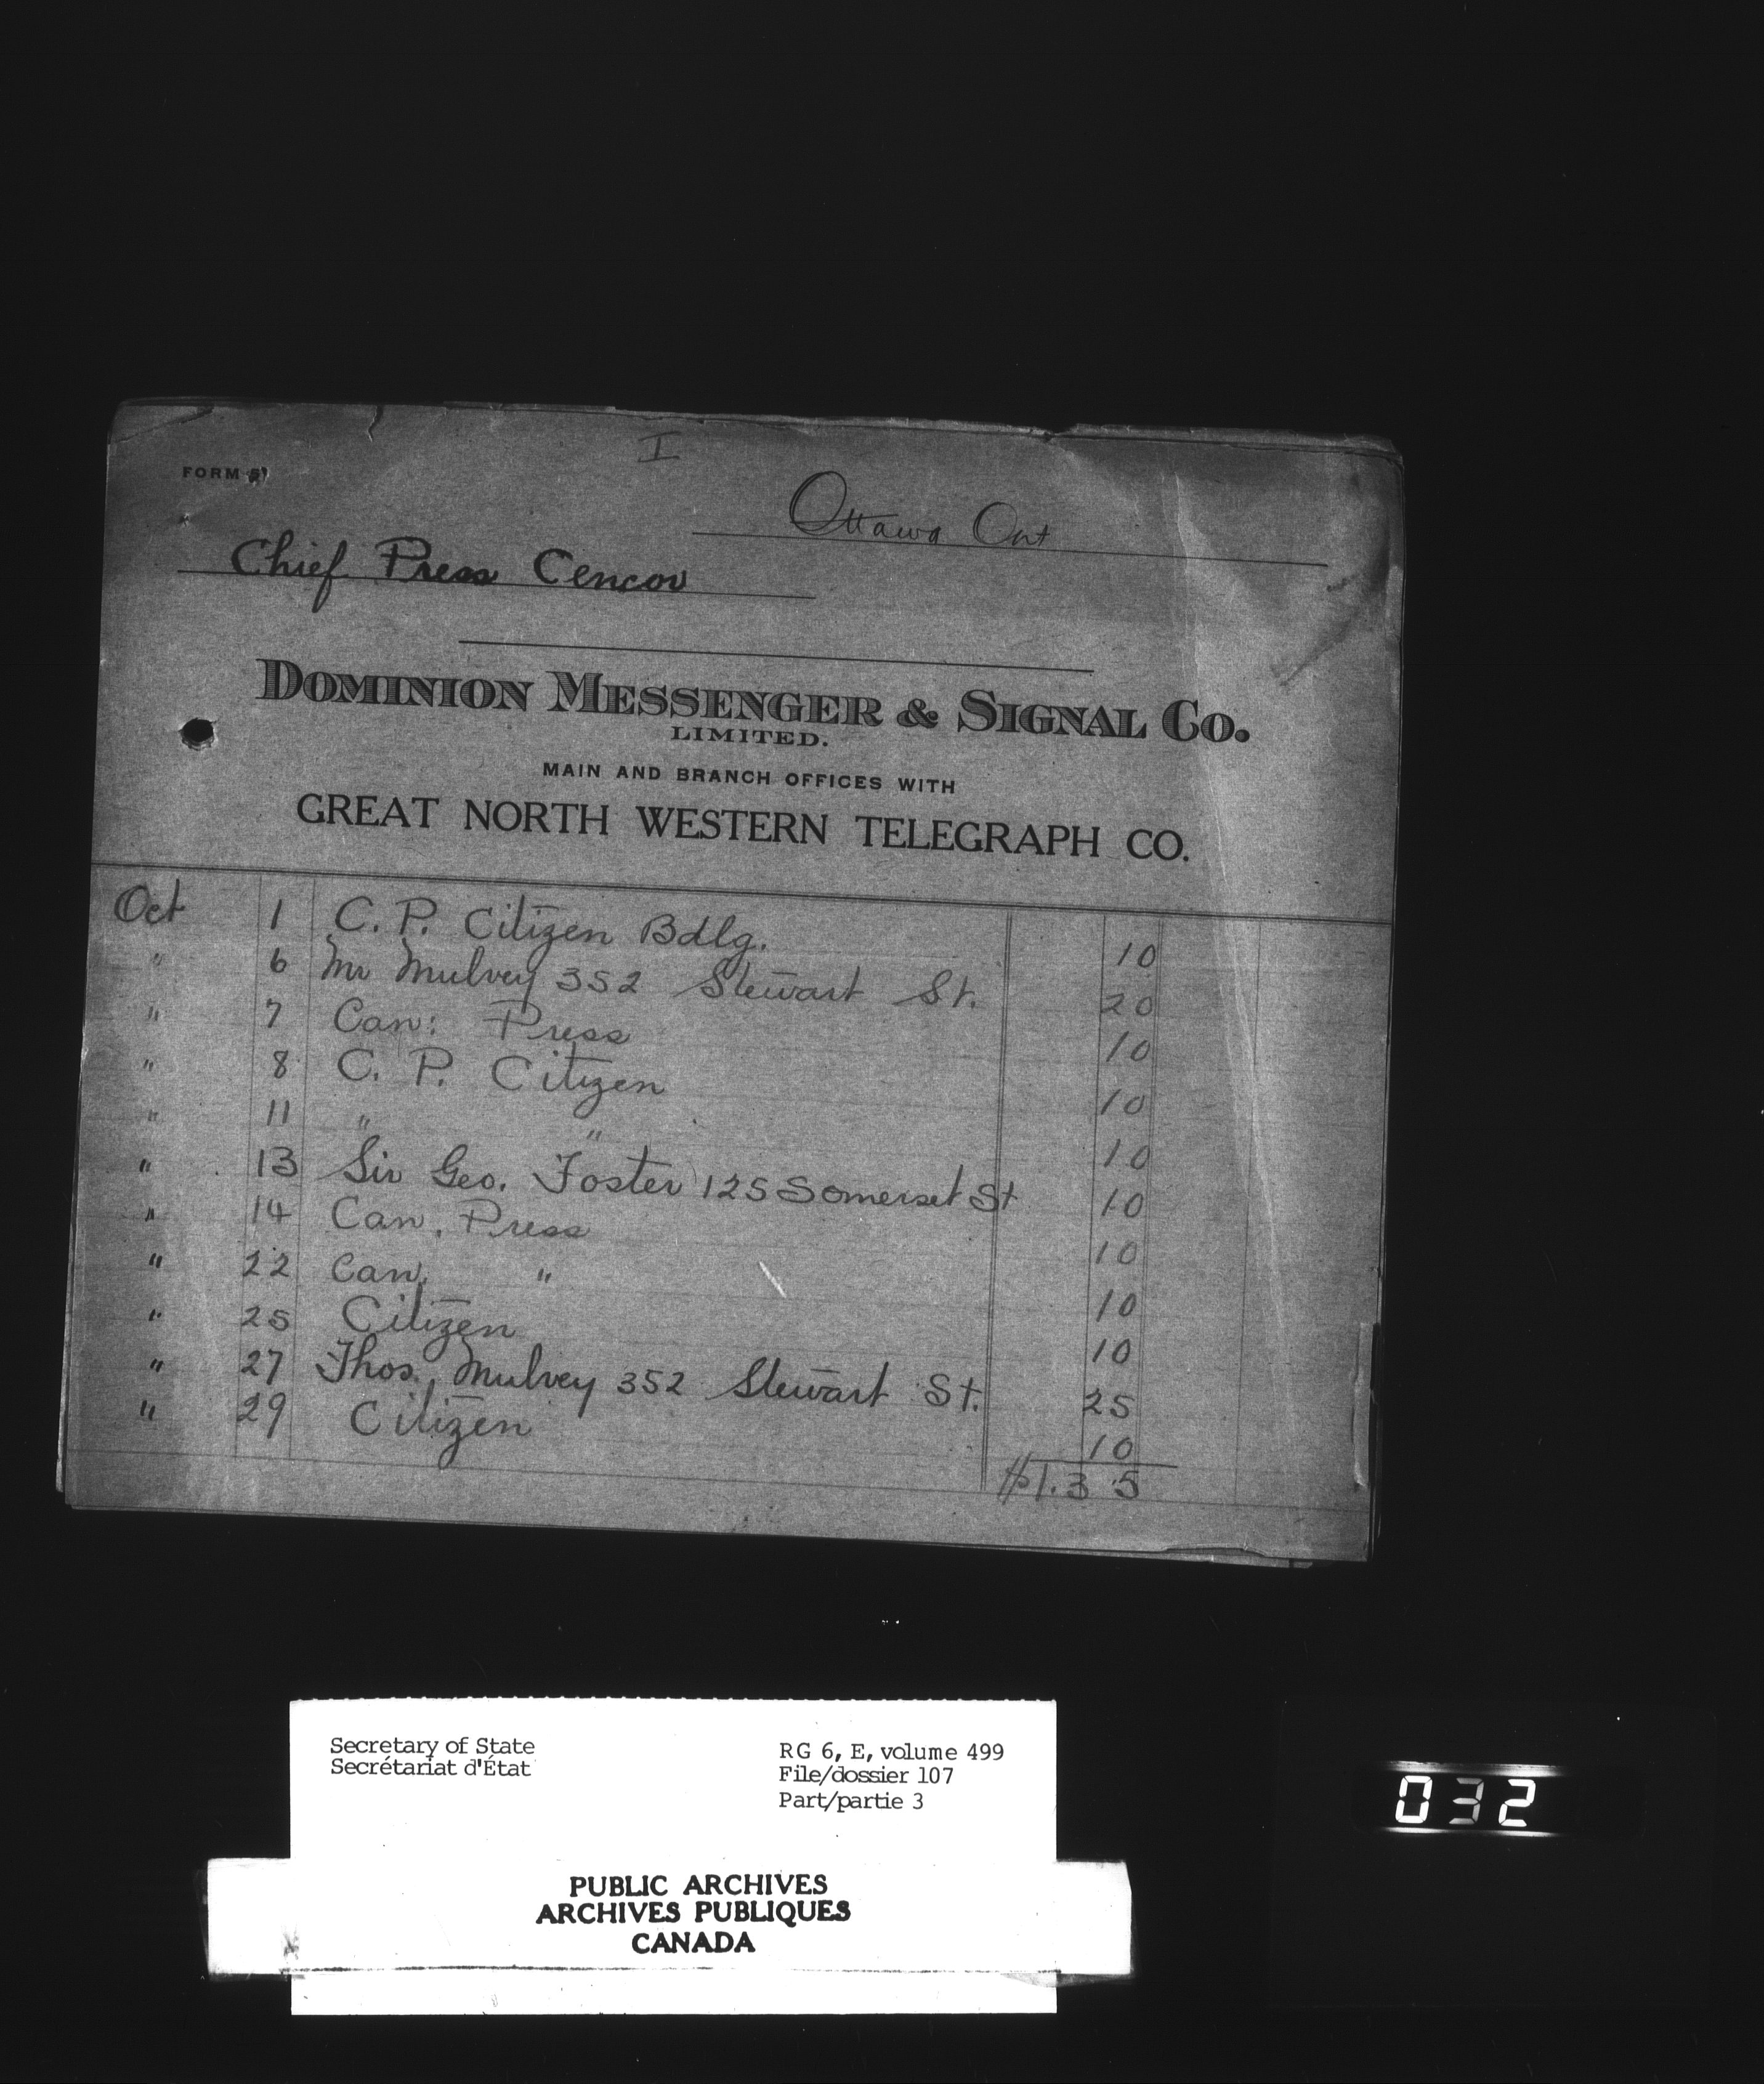 I
FORM 5
Ottawa Ont
Chief Press Cencor
DOMINION MESSENGER & SIGNAL CO.
LIMITED.
MAIN AND BRANCH OFFICES WITH
GREAT NORTH WESTERN TELEGRAPH CO.
Oct 1 C. P. Citizen Bdlg. 10
" 6 Mr Mulvey 352 Stewart St. 20
" 7 Can: Press 10
" 8 C. P. Citizen 10
" 11 " " 10
" 13 Sir Geo. Foster 125 Somerset St 10
" 14 Can. Press 10
" 22 Can. " 10
" 25 Citizen 10
" 27 Thos. Mulvey 352 Stewart St. 25
" 29 Citizen 10
$1.35
Secretary of State
Secrétariat d'État
RG 6, E, volume 499
File/dossier 107
Part/partie 3
PUBLIC ARCHIVES
ARCHIVES PUBLIQUES
CANADA
032